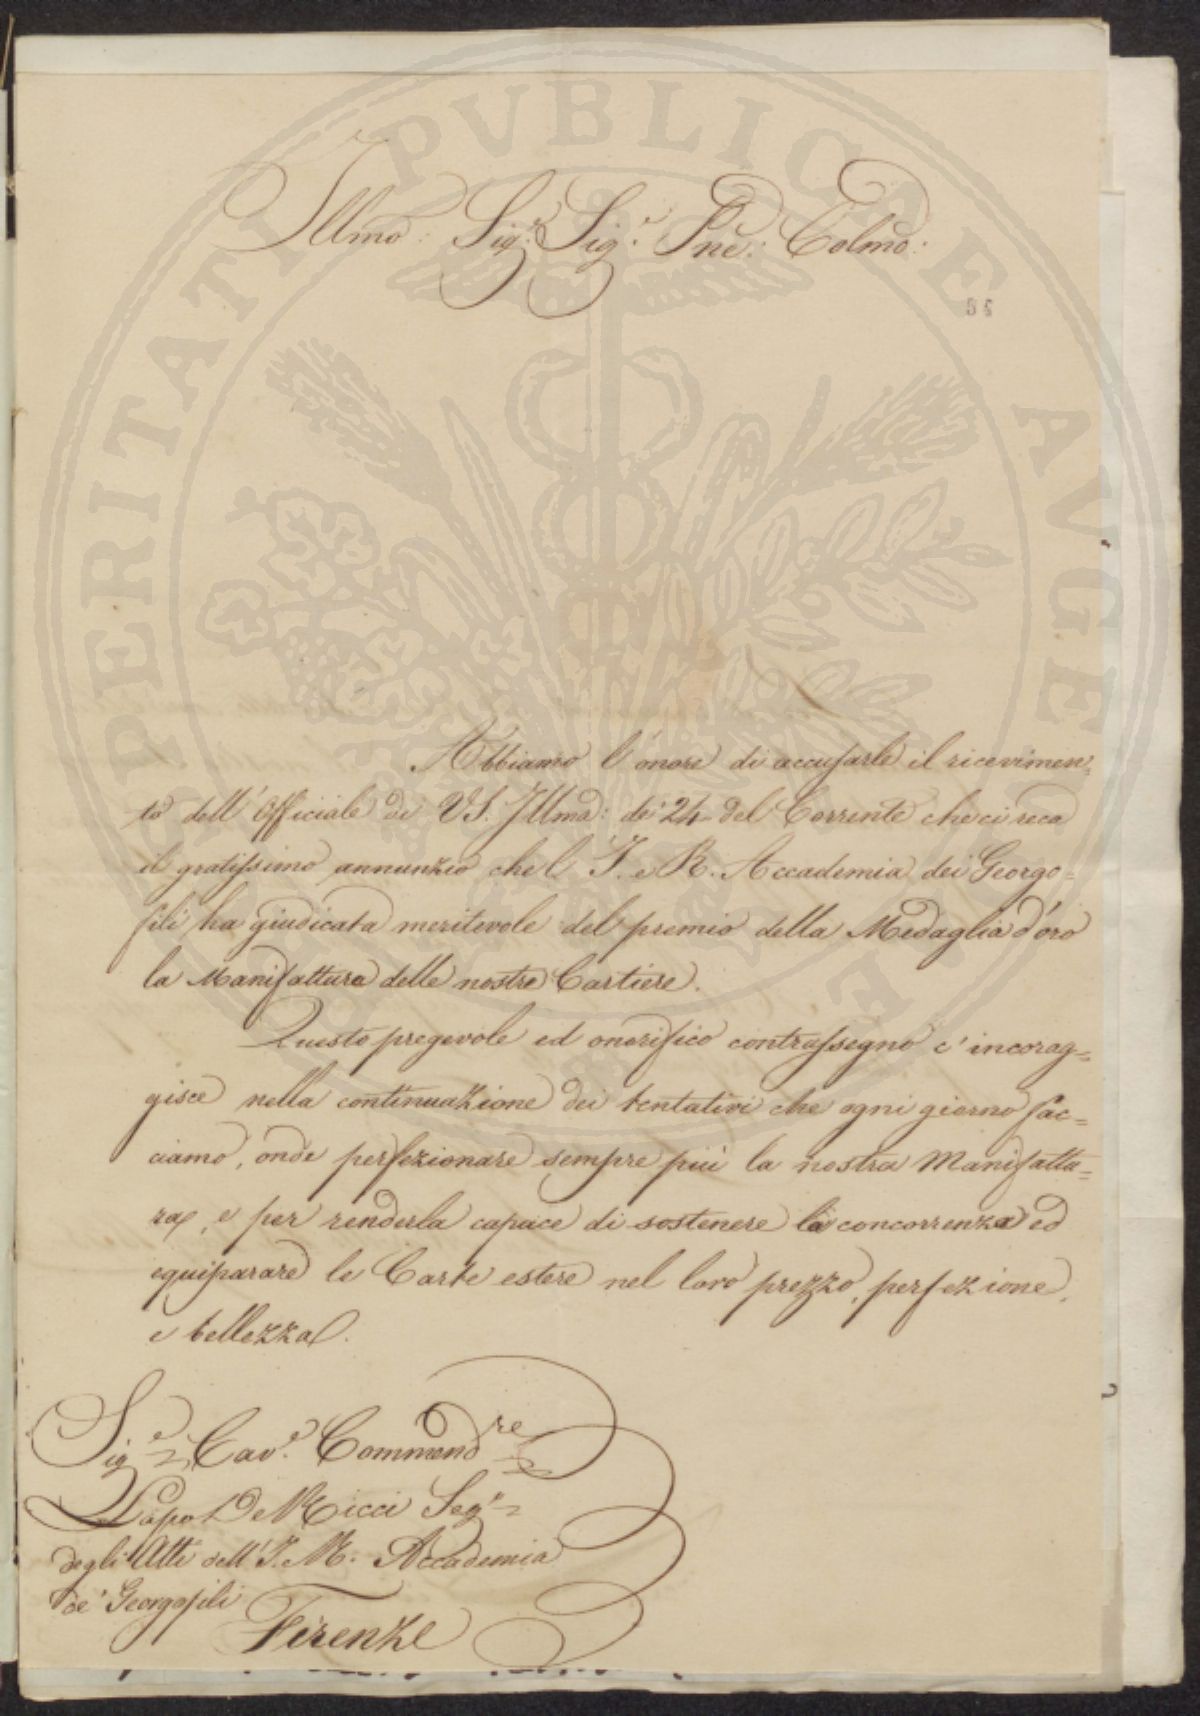 Illmo: Sig.r Sig.r Pne: Colmo:
84
Abbiamo l'onore di accusarle il ricevimen=
to dell'Officiale di VS. Illma: de' 24 del Corrente che ci reca
il gratissimo annunzio che l'I. e R. Accademia dei Georgo=
fili ha giudicata meritevole del premio della Medaglia d'oro
la Manifattura delle nostre Cartiere.
Questo pregevole ed onorifico contrassegno c'incorag=
gisce nella continuazione dei tentativi che ogni giorno fac=
ciamo, onde perfezionare sempre più la nostra Manifattu=
ra, e per renderla capace di sostenere la concorrenza ed
equiparare le Carte estere nel loro prezzo, perfezione,
e bellezza.
Sig.e Cav.e Commend.re
Lapo De Ricci Seg.o
degli Atti dell'I. e R. Accademia
de' Georgofili
Firenze
PROSPERITATI PUBLICAE AUGENDAE